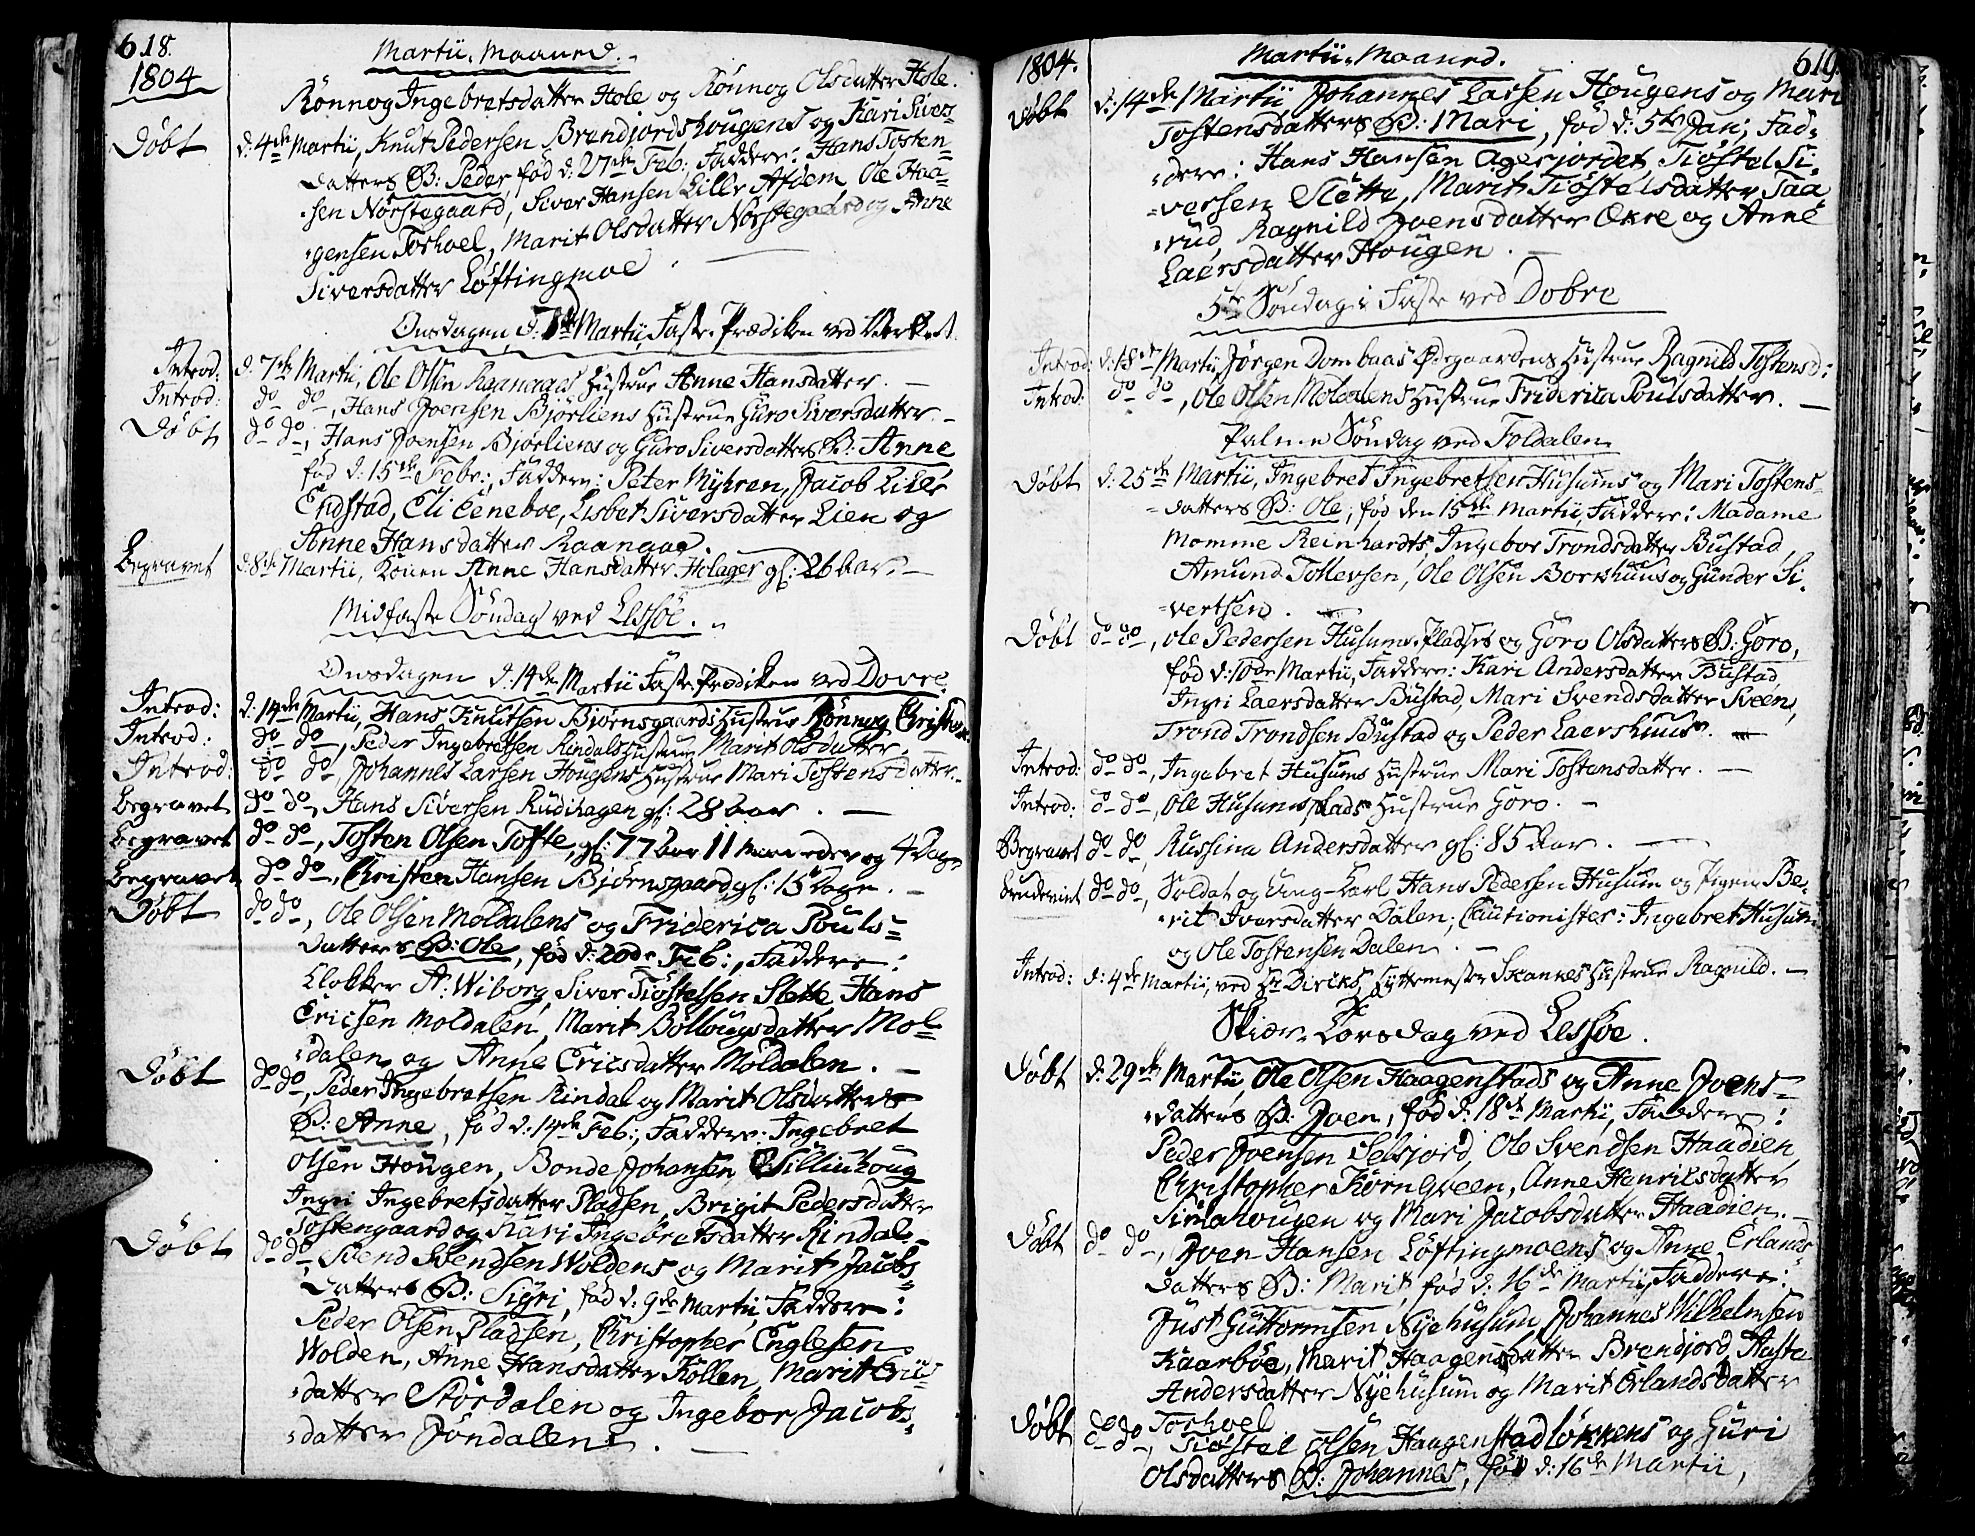 618.
1804
Martii Maaned.
Rönnog Ingebretsdatter Hole og Rönnog Olsdatter Hole.
Döbt d: 4de Martii, Knut Pedersen Brendjordshougens og Kari Sivers-
datters B: Peder, föd d: 27de Feb: Faddere: Hans Tosten-
sen Norstegaard, Siver Hansen Lille Afdem, Ole Haa-
gensen Torhoel, Marit Olsdatter Norstegaard og Anne
Siversdatter Löftingmoe.
Onsdagen d: 7de Martii, Faste-Prædiken ved Værket.
Introd: d: 7de Martii, Ole Olsen Raanaaes Hustrue Anne Hansdatter.
Introd: do do, Hans Joensen Bjorliens Hustrue Guro Siversdatter.
Döbt do do, Hans Joensen Bjorliens og Guro Siversdatters B: Anne
föd d: 15de Febr:, Faddere: Peter Myhren, Jacob Lille
Endstad, Eli Eeneboe, Lisbet Siversdatter Lien og
Anne Hansdatter Raanaae.
Begravet d: 8de Martii, Konen Anne Hansdatter Holager gl: 26 aar.
Midfaste Söndag ved Lessöe.
Onsdagen d: 14de Martii Faste Prædiken ved Dovre.
Introd: d: 14de Martii, Hans Knutsen Bjornsgaards Hustrue Rönnog
Introd: do do, Peder Ingebretsen Rindals Hustrue Marit Olsdatter.
Introd: do do, Johannes Larsen Hougens Hustrue Mari Tostensdatter.
Begravet do do, Hans Siversen Rudihagen gl: 28 aar.
Begravet do do, Tosten Olsen Tofte, gl: 77 aar 11 Maaneder og 4 Dage
Begravet do do, Christen Hansen Björnsgaard gl: 15 Dage.
Döbt do do, Ole Olsen Moldalens og Friderica Pouls-
datters B: Ole, föd d: 20de Feb:, Faddere:
Klokker A: Wiborg, Siver Tiöstelsen Slette, Hans
Ericsen Moldalen, Marit Böllougsdatter Mol-
dalen og Anne Ericsdatter Moldalen.
Döbt do do, Peder Ingebretsen Rindal og Marit Olsdatters
B: Anne, föd d: 14de Feb:, Faddere: Ingebret
Olsen Hougen, Bonde Johansen Silliuhoug
Ingri Ingebretsdatter Pladsen, Brigit Pedersdatter
Tostengaard og Kari Ingebretsdatter Rindal.
Döbt do do, Svend Svendsen Woldens og Marit Jacobs-
datters B: Sigri, föd d: 9de Martii, Faddere:
Peder Olsen Pladsen, Christopher Englesen
Wolden, Anne Hansdatter Kollen, Marit Erics-
datter Stordalen og Ingebor Jacobs-
datter Jöndalen.
1804.
Martii Maaned.
619.
Döbt d: 14de Martii Johannes Larsen Hougens og Mari
Tostensdatters B: Mari, föd d: 5te Jan; Fad-
dere: Hans Hansen Agerjordet, Tiöstel Si-
versen Slette, Marit Tiöstelsdatter Taa-
rud, Ragnild Joensdatter Ekre og Anne
Laersdatter Hougen.
5te Söndag i Faste ved Dobre
Introd: d: 18de Martii Jörgen Dombaas Ödegaardens Hustrue Ragnild Tostensd:
Introd: do do, Ole Olsen Moldalens Hustrue Friderica Poulsdatter.
Palme Söndag ved Foldalen
Döbt d: 25de Martii, Ingebred Ingebretsen Husums og Mari Tostens-
datters B: Ole, föd den 15de Martii, Faddere: Madame
Momme Reinhardts, Ingebor Trondsdatter Bustad,
Amund Tollevsen, Ole Olsen Borkhuus og Gunder Si-
vertsen.
Döbt do do, Ole Pedersen Husums-Pladses og Goro Olsdatters B: Goro,
föd d: 10de Martii, Faddere: Kari Andersdatter Bustad,
Ingri Laersdatter Bustad, Mari Svendsdatter Sveen,
Trond Trondsen Bustad og Peder Laershuus.
Introd: do do, Ingebret Husums Hustrue Mari Tostensdatter.
Introd: do do, Ole Husumsplads Hustrue Goro.
Begravet do do, Russina Andersdatter gl: 85 Aar.
Brudeviet do do, Soldat og Ung-Karl Hans Pedersen Husum og Pigen Be-
rit Iversdatter Dalen; Cautionister: Ingebret Husum
og Ole Tostensen Dalen.
Introd: d: 4de Martii, ved Hr Dircks, Hyttemester Skannes Hustrue Ragnild.
Skiær-Torsdag ved Lessöe.
Döbt d: 29de Martii, Ole Olsen Haagenstads og Anne Joens-
datters B: Joen, föd d: 18de Martii, Faddere:
Peder Joensen Selsjord, Ole Svendsen Haadien,
Christopher Kornqveen, Anne Henricsdatter
og Mari Jacobsdatter Haadien.
Döbt do do, Joen Hansen Löftingmoens og Anne Erlands-
datters B: Marit, föd d: 16de Martii, Faddere:
Just Guttormsen Nyehusum, Johannes Wilhelmsen
Kaarböe, Marit Haagensdatter Brendjord, Aaste
Andersdatter Nyehusum og Marit Erlandsdatter
Torhoel
Döbt do do, Tiöstel Olsen Haagenstadlökkens og Guri
Olsdatters B: Johannes, föd d: 16de Martii,